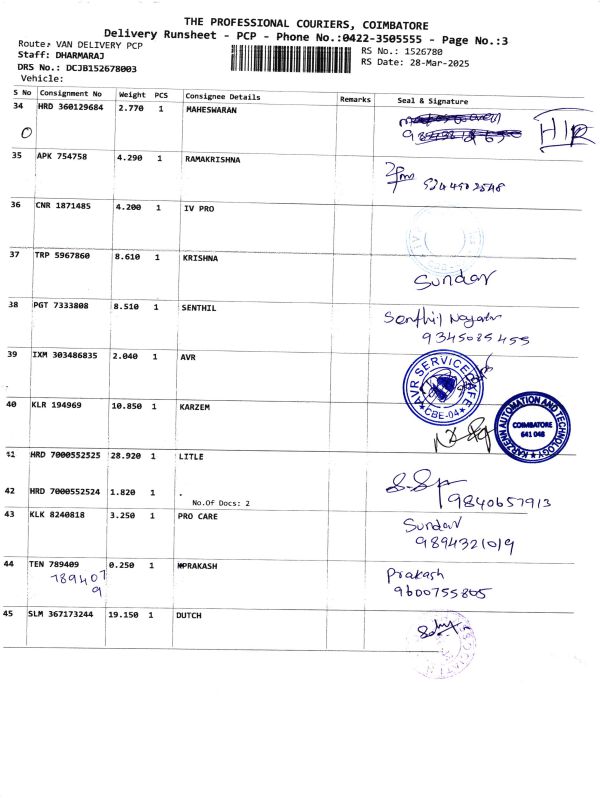 THE PROFESSIONAL COURIERS, COIMBATORE
Delivery Runsheet - PCP - Phone No.:0422-3505555 - Page No.:3
Route: VAN DELIVERY PCP
Staff: DHARMARAJ
DRS No.: DCJB152678003
Vehicle:
RS No.: 1526780
RS Date: 28-Mar-2025
S No Consignment No Weight PCS Consignee Details Remarks Seal & Signature
34 HRD 360129684 2.770 1 MAHESWARAN
O
HIR
35 APK 754758 4.290 1 RAMAKRISHNA
36 CNR 1871485 4.200 1 IV PRO
37 TRP 5967860 8.610 1 KRISHNA
Sundar
38 PGT 7333808 8.510 1 SENTHIL
Senthil
9345085455
39 IXM 303486835 2.040 1 AVR
AVR SERVICE
CBE-04
40 KLR 194969 10.850 1 KARZEM
KARZENN AUTOMATION AND TECHNOLOGY
COIMBATORE
641 048
41 HRD 7000552525 28.920 1 LITLE
42 HRD 7000552524 1.820 1 .
No.Of Docs: 2
9840657913
43 KLK 8240818 3.250 1 PRO CARE
Sundar
9894321019
44 TEN 789409 0.250 1 PRAKASH
789407
9
Prakash
9600755805
45 SLM 367173244 19.150 1 DUTCH